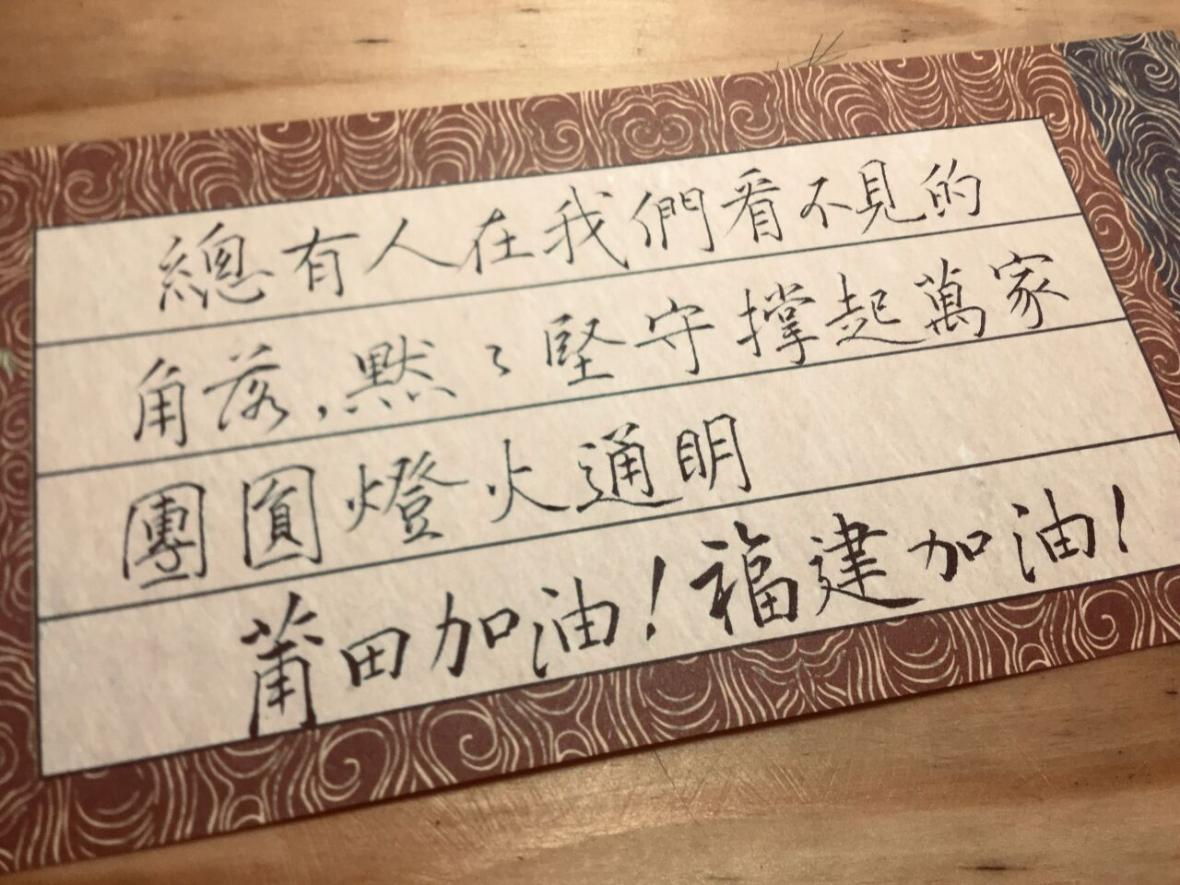 總有人在我們看不見的
角落,默〻堅守撐起萬家
團圓燈火通明
莆田加油!福建加油!